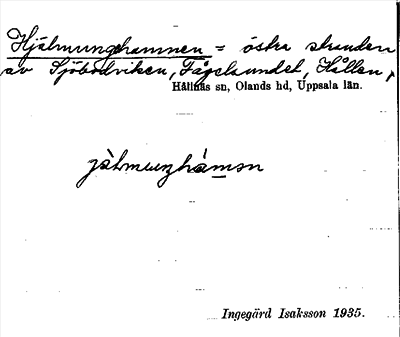 Hjälmungshamnen = östra stranden
av Sjöbodviken, Fågelsundet, Hållen,
Hållnäs sn, Olands hd, Uppsala län.
jälmunghamən
Ingegärd Isaksson 1935.